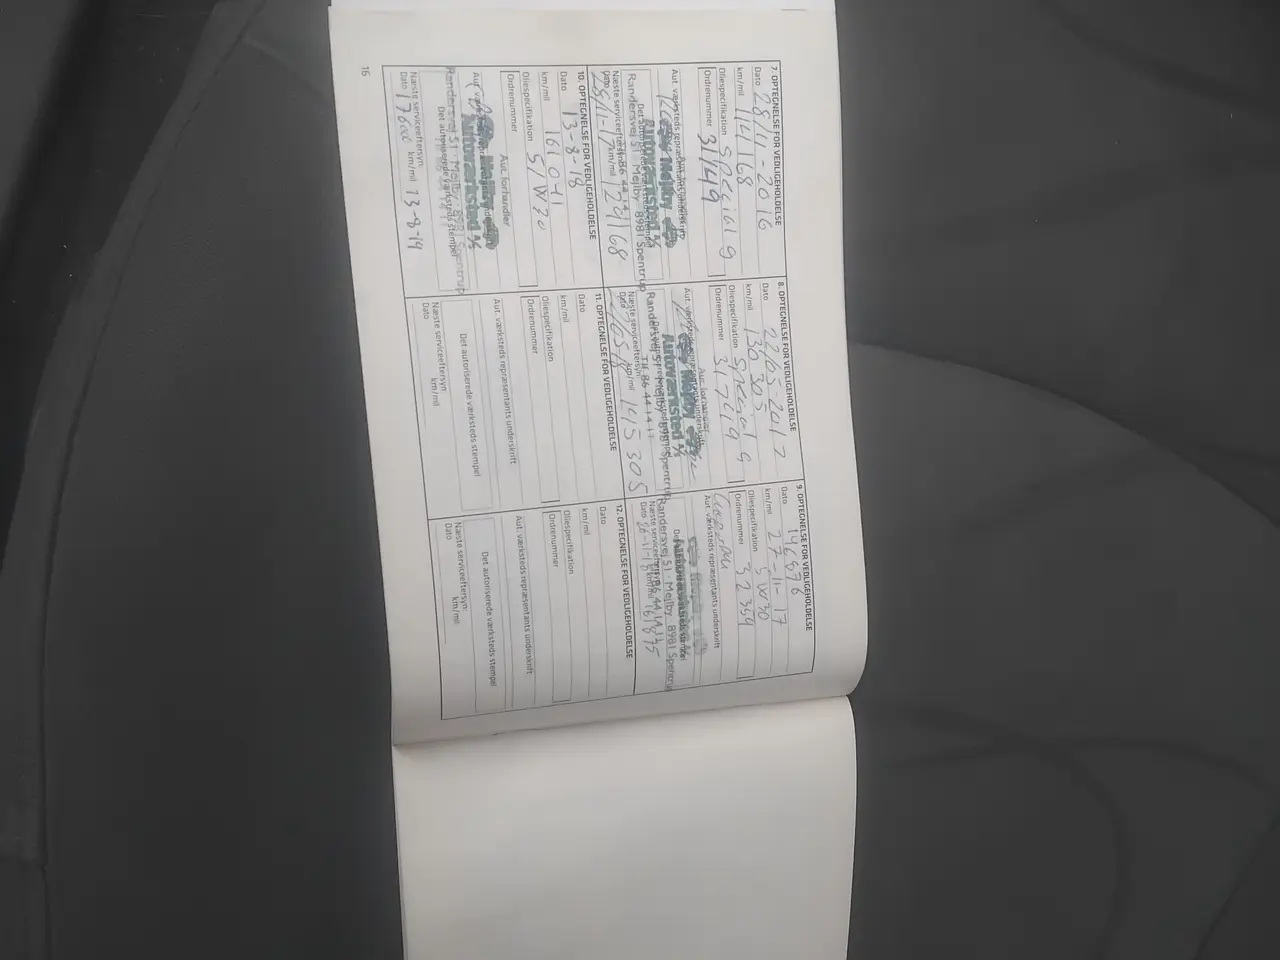 7. OPTEGNELSE FOR VEDLIGEHOLDELSE
Dato 28/11-2016
km/mil 114168
Oliespecifikation Special G
Ordrenummer 31149
Aut. værksteds repræsentants underskrift
Mejlby
Autoværksted A/S
Det autoriserede værksteds stempel
Randersvej 51 · Mejlby 8981 Spentrup
Næste serviceeftersyn:
Dato 28/11-17 km/mil 129168
8. OPTEGNELSE FOR VEDLIGEHOLDELSE
Dato 22/05 2017
km/mil 130305
Oliespecifikation Special G
Ordrenummer 31769
Aut. forhandler
Aut. værksteds repræsentants underskrift
Mejlby
Autoværksted A/S
Randersvej 51 · Mejlby 8981 Spentrup
Tlf. 86 44 14 11
Næste serviceeftersyn:
Dato 22/05 18 km/mil 145 305
9. OPTEGNELSE FOR VEDLIGEHOLDELSE
146876
Dato 27-11-17
km/mil
Oliespecifikation 5W30
Ordrenummer 32359
Aut. værksteds repræsentants underskrift
Randersvej 51 · Mejlby 8981 Spentrup
Næste serviceeftersyn:
Dato 26-11-18 km/mil 161875
10. OPTEGNELSE FOR VEDLIGEHOLDELSE
Dato 13-8-18
km/mil 161 041
Oliespecifikation 5/W30
Ordrenummer
Aut. forhandler
Mejlby
Autoværksted A/S
Det autoriserede værksteds stempel
Randersvej 51 · Mejlby 8981 Spentrup
Næste serviceeftersyn:
Dato 176000 km/mil 13-8-19
11. OPTEGNELSE FOR VEDLIGEHOLDELSE
Dato
km/mil
Oliespecifikation
Ordrenummer
Aut. værksteds repræsentants underskrift
Det autoriserede værksteds stempel
Næste serviceeftersyn:
Dato km/mil
12. OPTEGNELSE FOR VEDLIGEHOLDELSE
Dato
km/mil
Oliespecifikation
Ordrenummer
Aut. værksteds repræsentants underskrift
Det autoriserede værksteds stempel
Næste serviceeftersyn:
Dato km/mil
16